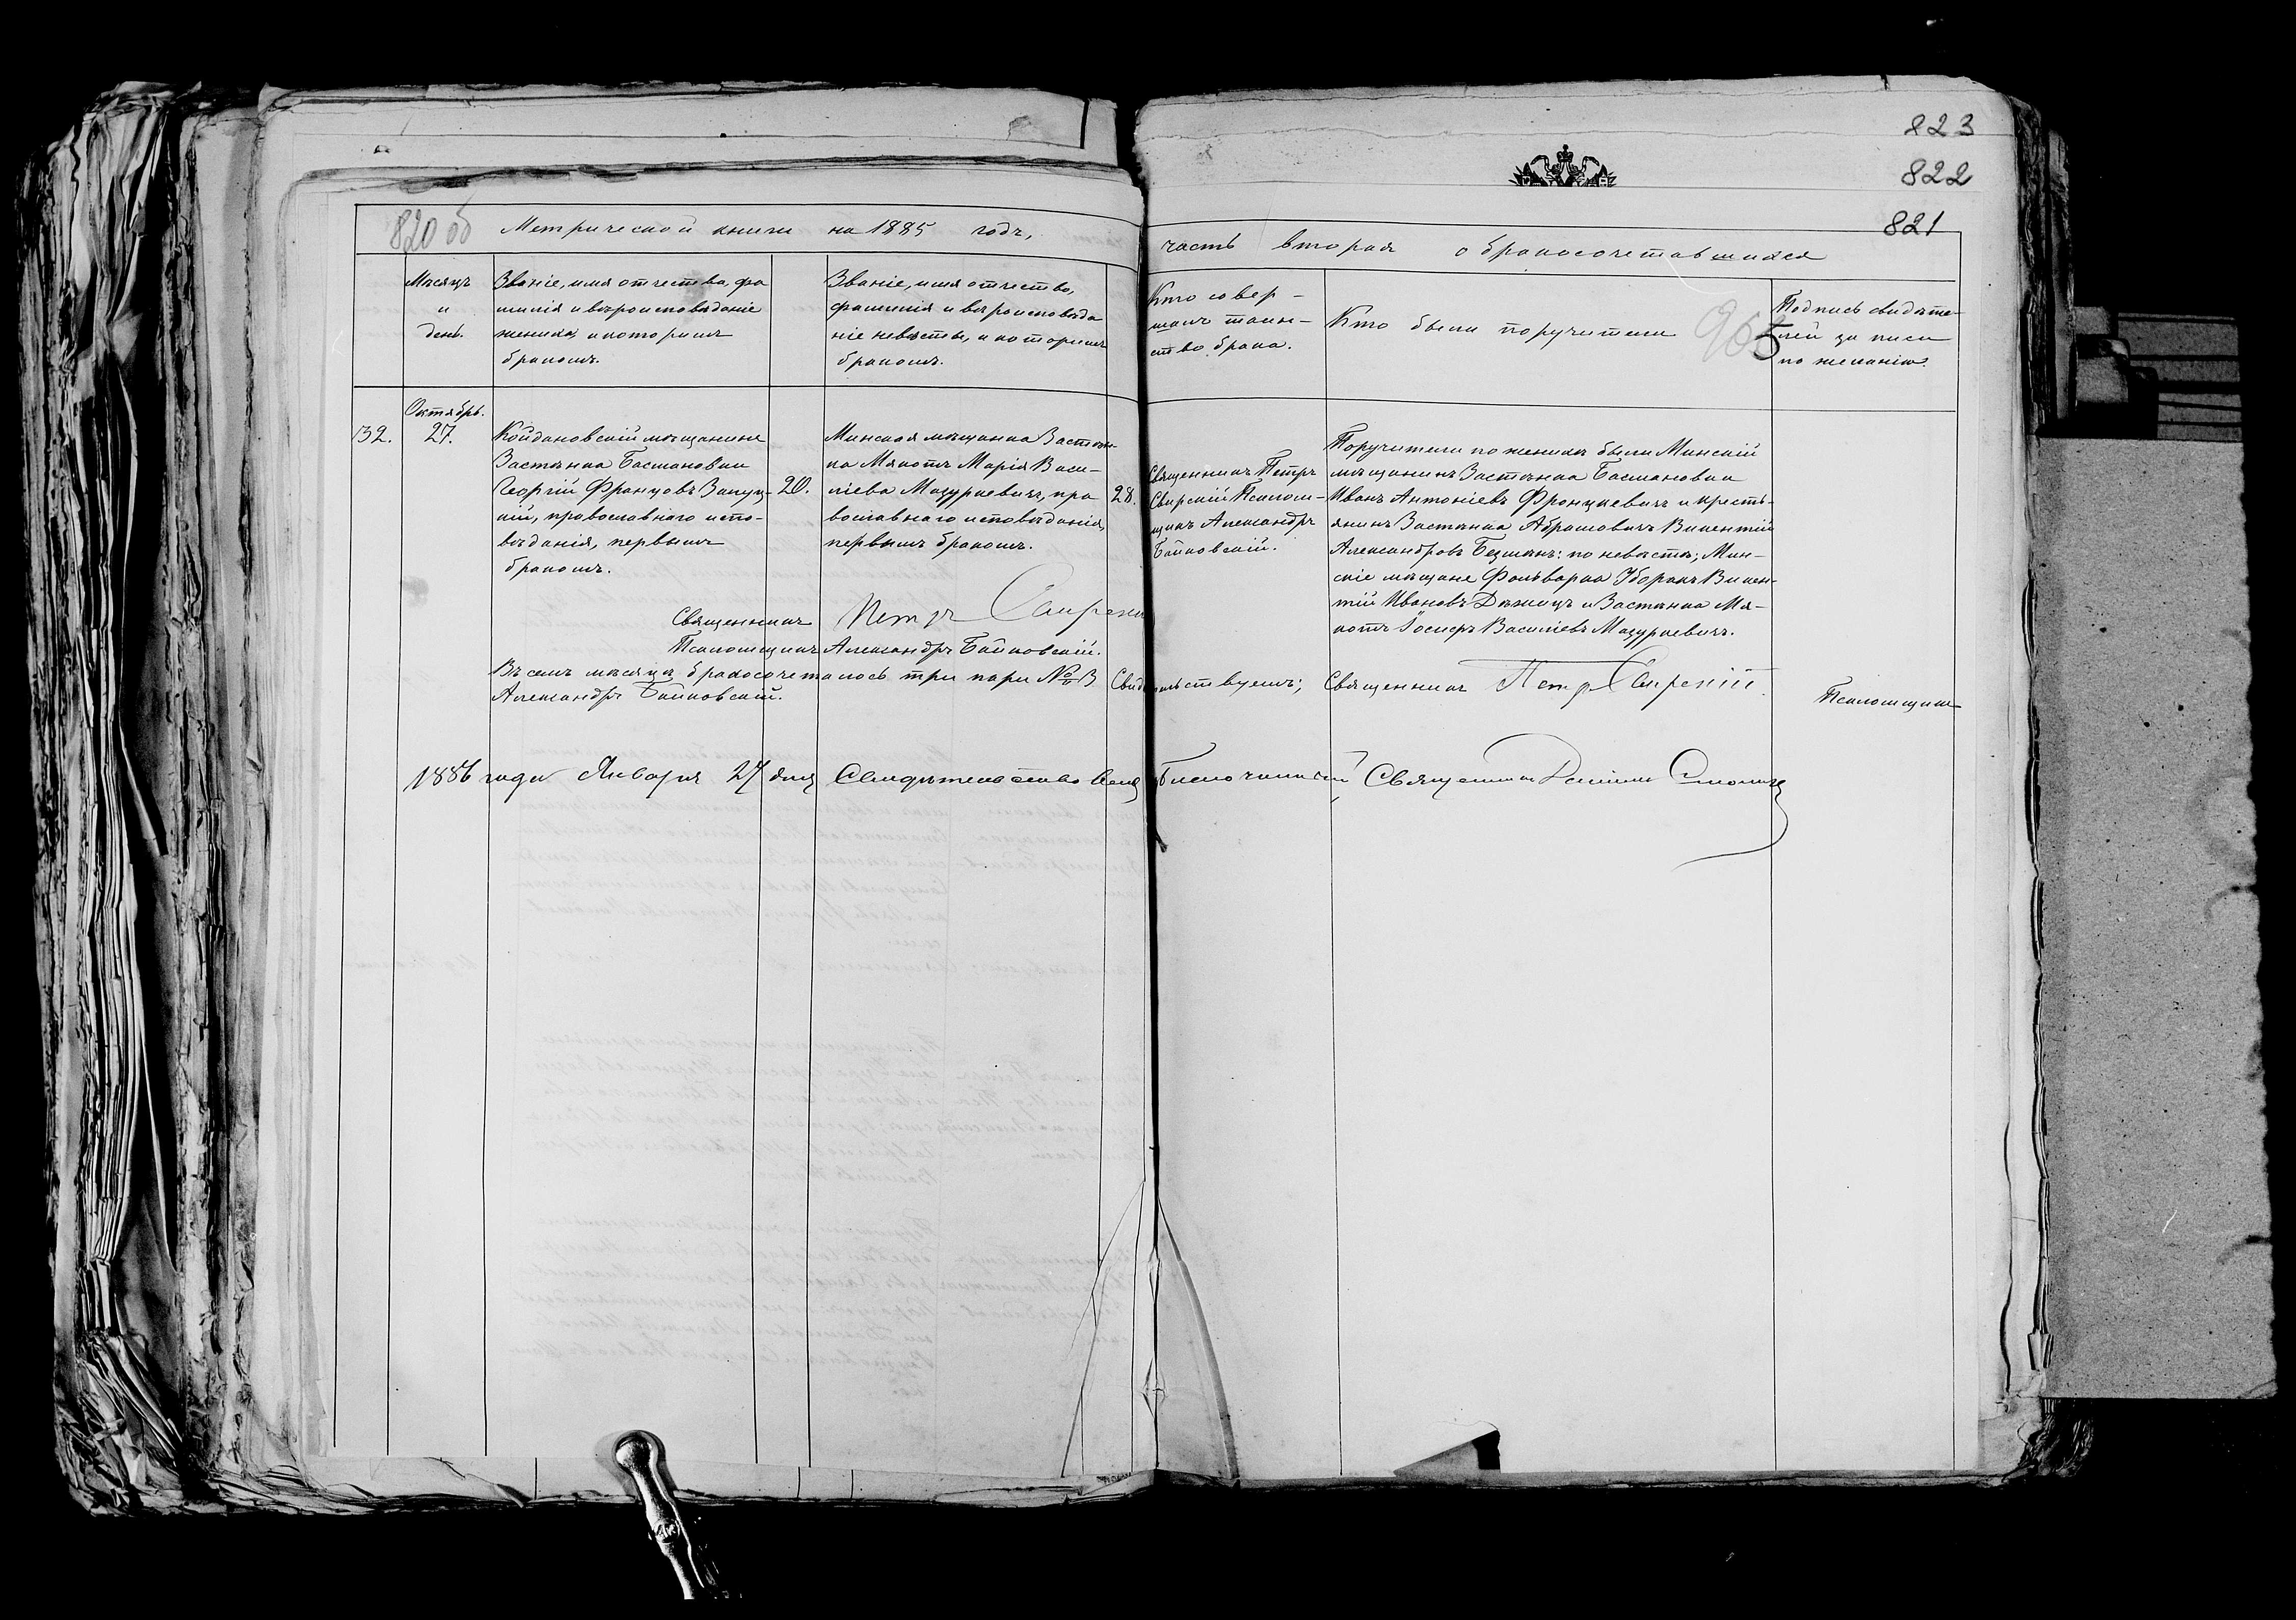 823
822
821
820 об
Метрической книги на 1885 годъ,
часть вторая о бракосочетавшихся
Мѣсяцъ
и
день.
Званіе, имя отчество, фа
милія и вѣроисповѣданіе
жениха, и которымъ
бракомъ.
Званіе, имя отчество,
фамилія и вѣроисповѣда
ніе невѣсты, и которымъ
бракомъ.
Кто совер-
шалъ таин-
ство брака.
Кто были поручители
965
Подпись свидѣте-
лей записи
по желанію.
Октябрь.
32.
27.
Койдановскій мѣщанинъ
Застѣнка Басмановки
Георгій Францовъ
кій, православнаго испо-
вѣданія, первымъ
бракомъ.
20.
Минская мѣщанка Застѣн-
ка Мякотъ Марія Васи-
ліева Мазуркевичъ, пра
вославнаго исповѣданія,
первымъ бракомъ.
28.
Священникъ Петръ
Свирскій Псалом-
щикъ Александръ
Байковскій.
Поручители по женихѣ были Минскій
мѣщанинъ Застѣнка Басмановки
Иванъ Антоніевъ Францкевичъ и кресть-
янинъ Застѣнка Абрамовичъ Викентій
Александровъ : по невѣстѣ; Мин-
скіе мѣщане Фольварка Уборакъ Викен-
тій Ивановъ и Застѣнка Мя-
котъ Іосифъ Василіевъ Мазуркевичъ.
Священникъ Петръ Свирскій
Псаломщикъ Александръ Байковскій.
Въ семъ мѣсяцѣ бракосочеталось три пары № 3 Свидѣтельствуемъ; Священникъ Петръ Свирскій. Псаломщикъ
Александръ Байковскій.
1886 года Января 27 дня Свидѣтельствовалъ Благочинный Священникъ